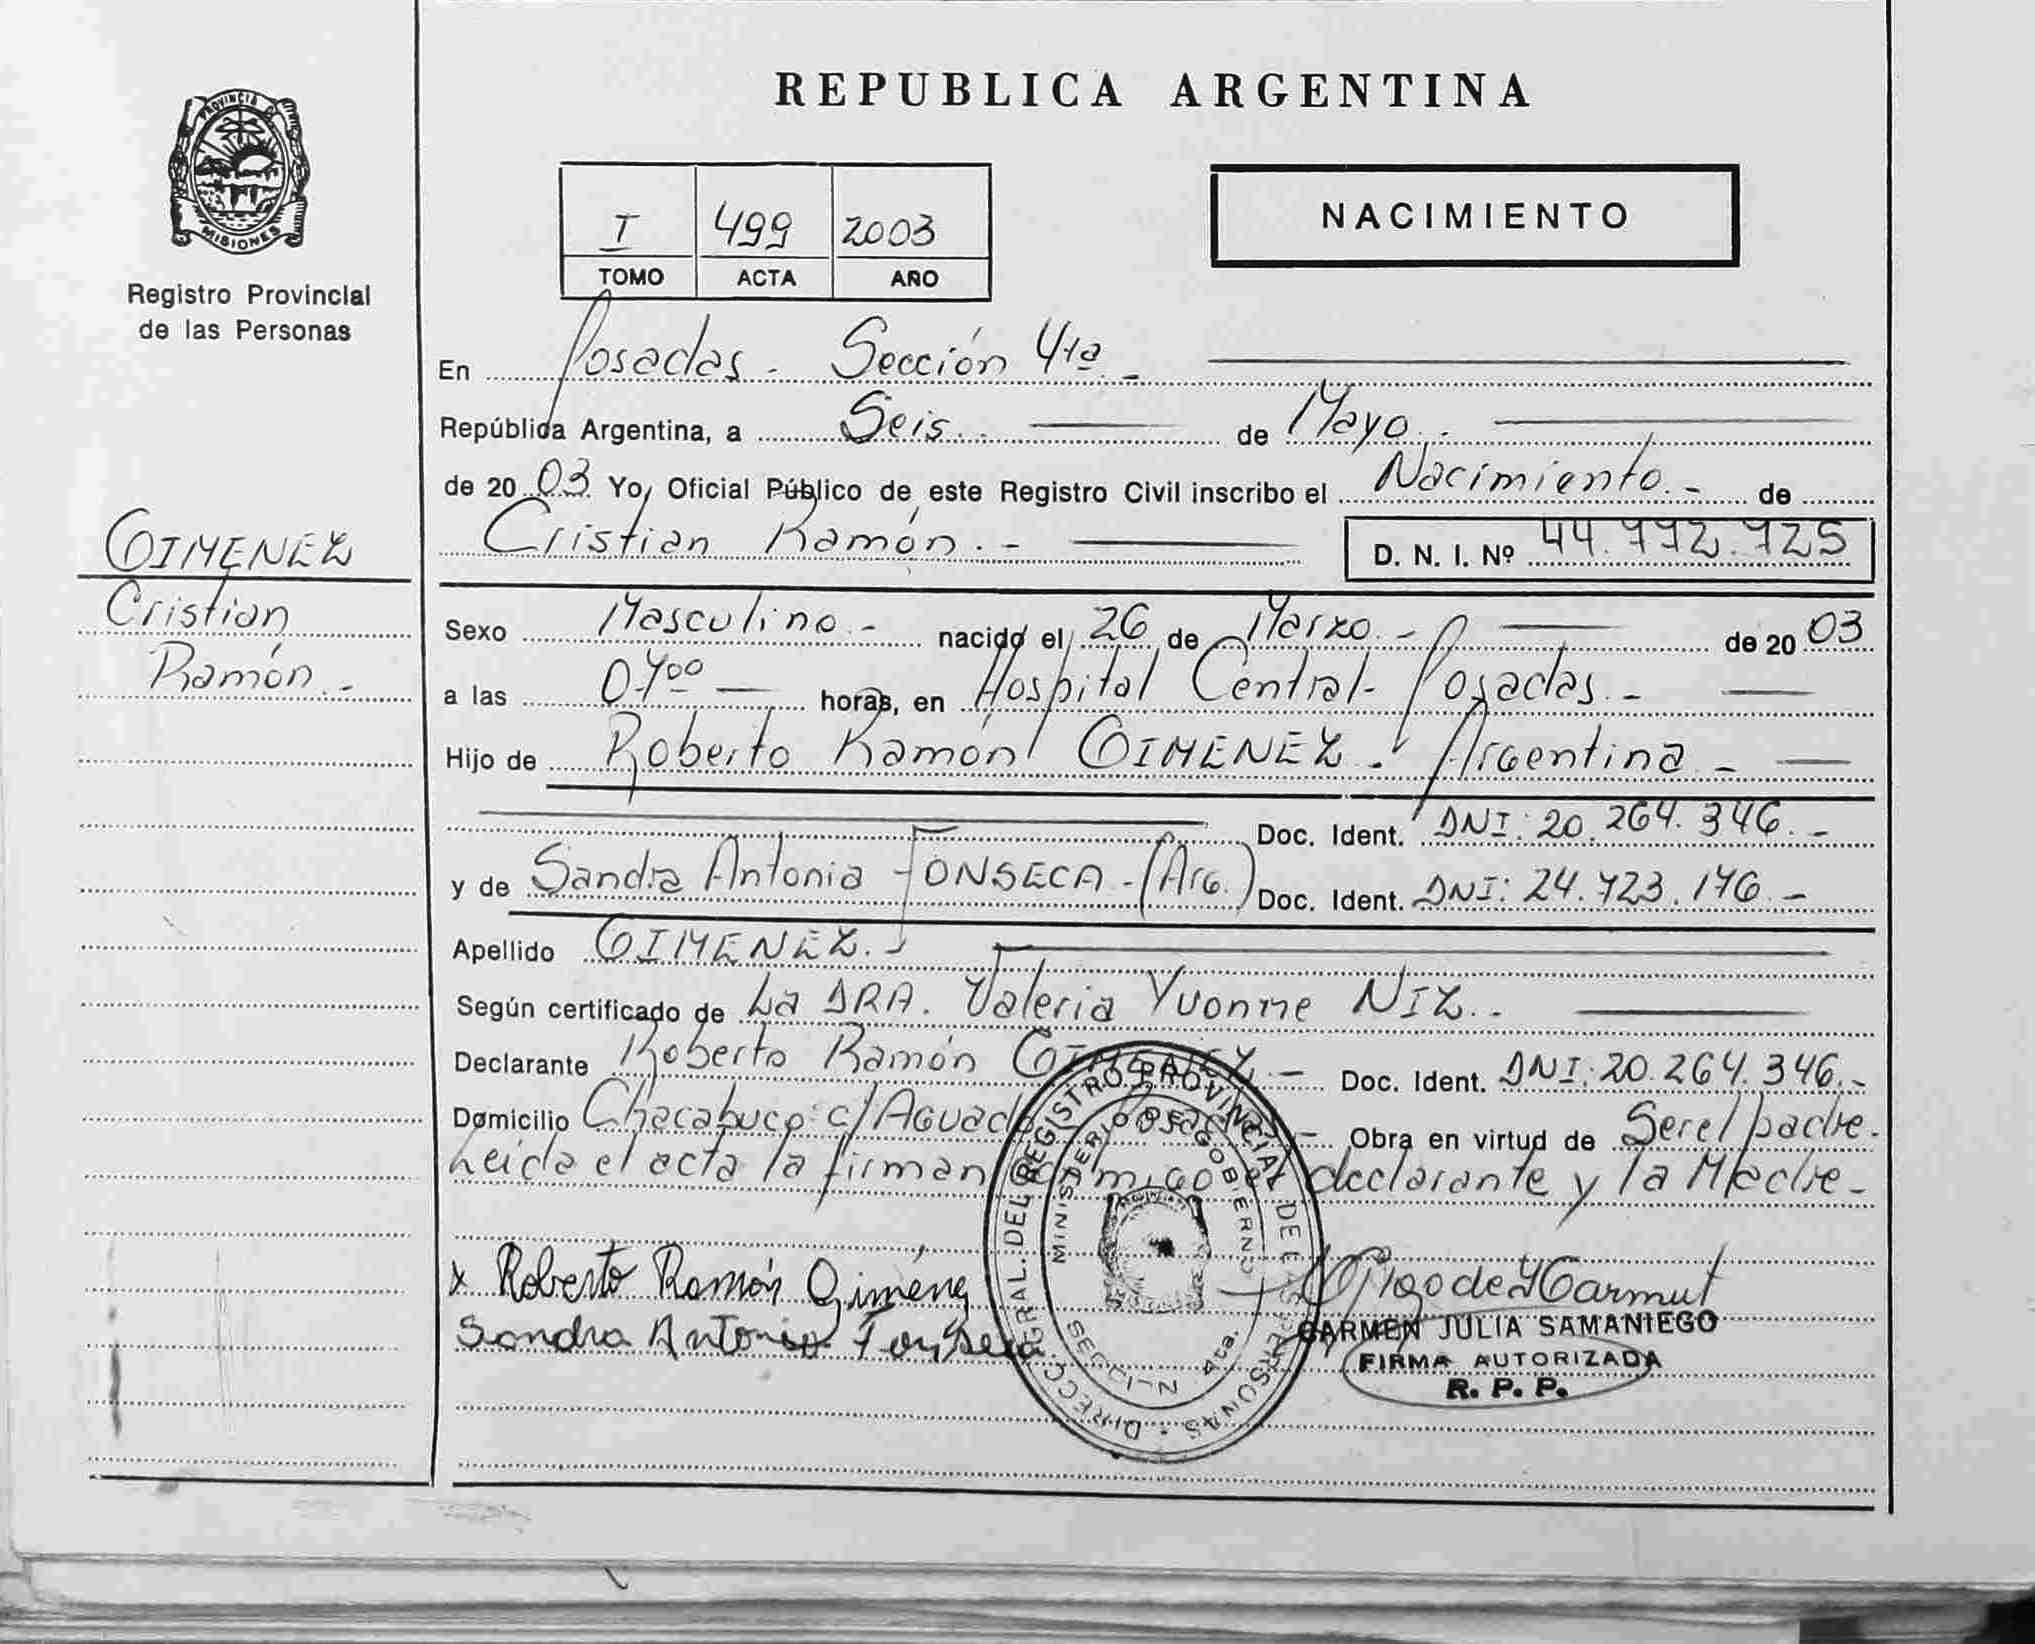 PROVINCIA DE
MISIONES
Registro Provincial
de las Personas
GIMENEZ
Cristian
Ramón.-
REPUBLICA ARGENTINA
I 499 2003
TOMO ACTA AÑO
NACIMIENTO
En Posadas - Sección 4ta.-
República Argentina, a Seis.- de Mayo.-
de 2003 Yo, Oficial Público de este Registro Civil inscribo el Nacimiento.- de
Cristian Ramón.- D. N. I. Nº 44.772.725
Sexo Masculino.- nacido el 26 de Marzo.- de 2003
a las 0700 horas, en Hospital Central- Posadas.-
Hijo de Roberto Ramón GIMENEZ.- Argentina.-
Doc. Ident. DNI: 20.264.346.-
y de Sandra Antonia FONSECA-(Arg.) Doc. Ident. DNI: 24.723.176.-
Apellido GIMENEZ.-
Según certificado de La DRA. Valeria Yvonne NIZ.-
Declarante Roberto Ramón GIMENEZ.- Doc. Ident. DNI: 20.264.346.-
Domicilio Chacabuco c/Aguado Posadas.- Obra en virtud de Ser el padre.
Leida el acta la firman conmigo el declarante y la Madre-
x Roberto Ramón Giménez
Sandra Antonia Fonseca
DIRECC. GRAL. DEL REGISTRO PROVINCIAL DE LAS PERSONAS
MINISTERIO DE GOBIERNO
SECCION 4ta.
CARMEN JULIA SAMANIEGO
FIRMA AUTORIZADA
R. P. P.